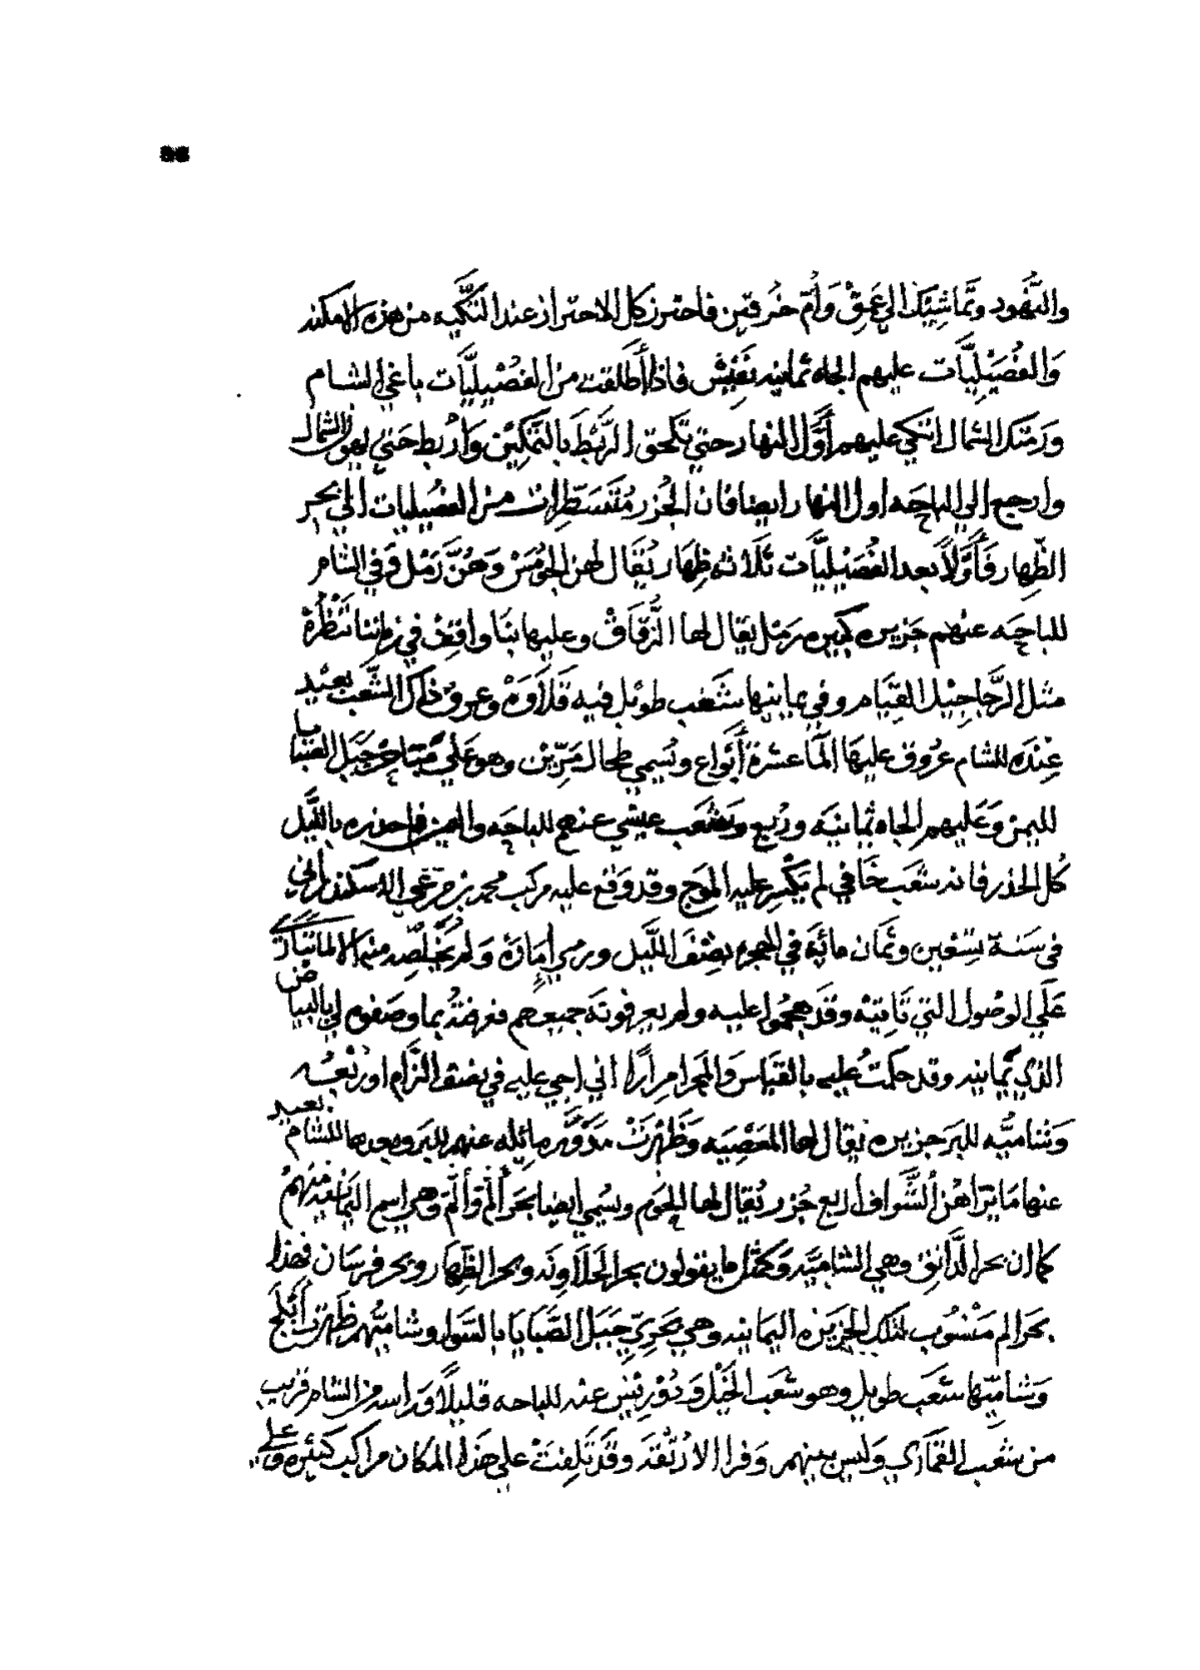 والنُّهُود وتَّماشِيَنك الي عَمِقْ وَأُمّ خُرقتين فاحترز كل الاحتراز عند التَّنَكِّيه من هذه الامكنه
وَالفُصَيْلِيَّات عليهم الجاه ثمانيه تَفْتِيش فاذا أَطلقت من الفُصَيْلِيَّات باغي الشام
وَرَمتك الشمال اتكي عليهم أَوَّل النهار حتي تلحق الرَّبْطَ بالتَّمَكِين وَارُبط حَتي يعول الشمال
وارجع الي الباحَه اول النهار ايضا فان الجُزر مُتَقسَطِرات من الفصيليات الي بحر
الظِّهار فَأَوَّلاً بعد الفُصَيْلِيَّات ثَلاثه ظِهَار يُقَال لهن الجُوَمْسَ وَهُنَّ رَمْل وَفي الشام
للباحَه عنهم جزيره كبيره رَمل يقال لها الزُّقَاقْ وعليها بَنا واقِف في زماننا تَنْظُرهْ
مثل الرَّجَا جِيْلَ القِيَام وفي ما بينها شَعْب طويل فيه قَلَاوَهْ وعروق ذلك الشَّعب بعيْد
عِنْدَه للشام عُروق عليهَا الَما عشرة أَبْوَاع وتُسَمي طحال مَرِّيْن وهو عَلي مُنتاخ جَبَل الصَّبَايا
لليمن وَعَليهم الجاه ثمانيَه ورُبع وَشعَب عيسي عنهم للباحَه واليمن فاحذره بالليل
كُل الحذر فانه شعَب خَافي لم يَكْسِر عليه الموج وقد وَقع عليه مركب محمد بن مرعي الاسكندراني
في سَنة تِسْعين وثَمَان مائَة في الهجره نِصْفَ اللَّيل ورمي أَمانَهْ وَلم يُخَلِّصه منه الا
عَلَي الوصُول التي تَامِنهْ وقد هجَموا عليه ولم يعرفونَه جميعهم فعرفتُه بما وصَفوه لي بالبياض
الذي يمانيه وقد حكمتُ عليه بالقَيَاس وَالمجرا مرارًا اني اجي عليه في نصف الزَّام او رُبعُه
وَشاميُّه للبَر جزيره يقال لها المَعْصِيَه وَظَهْرَتْ مدَوَّره مائله عنهم للبَر وبعدها للشام بعيد
عنها مَا يتراهُن الشَّواف اربع جُزر يُقال لها اللحَوم ويسُمي ايضا بَحرَ أَلَمْ وأَلَمْ وهي اسم اليَمانيه مِنهُم
كما ان بحر الدَّانِق وهي الشاميَّه وَكمثْل ما يقولون بحر الحَلَاوِنَه وبحر الظِّهَار وبحر فرسَان فهذا
بحَر الم مَنْسُوب لتلك الجزيره اليمانيه وهي بَحَرِيِّ جَبَل الصَّبَايا بالسَّوا وشاميُّهم ظهرت أَبلَج
وَشاميّها شعَب طويل وهو شعَب الخَيْل وَدُوْرِيْش عنه للباحه قليلاً وَراسه من الشام قريب
من شعْب القَمَاري وَليس بينهم وَفرا الا رُقّعَه وقَد تَلِفَتْ علي هَذا المكان مراكب كثيرَه وَعلي